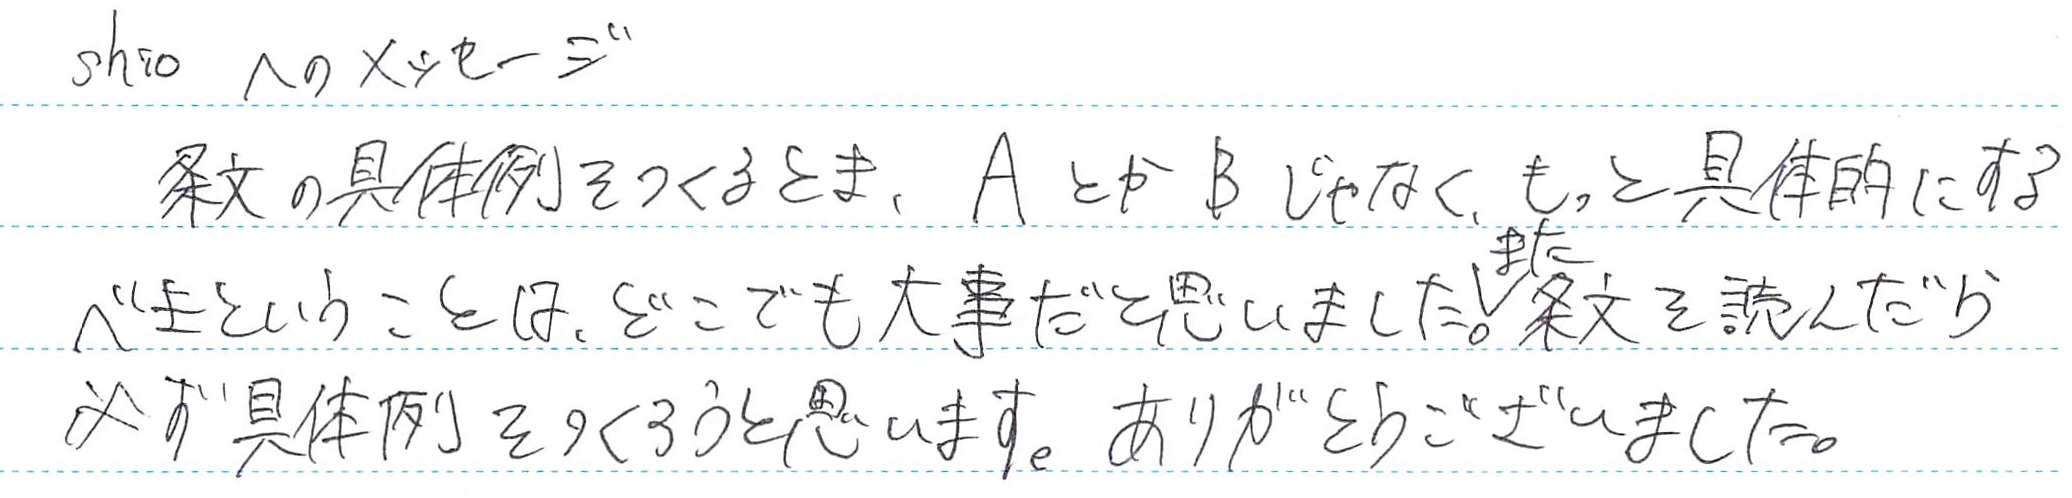 shio へのメッセージ
条文の具体例をつくるときは、AとかBじゃなく、もっと具体的にする
べきということは、どこでも大事だと思いました。また条文を読んだら
必ず具体例をつくろうと思います。ありがとうございました。